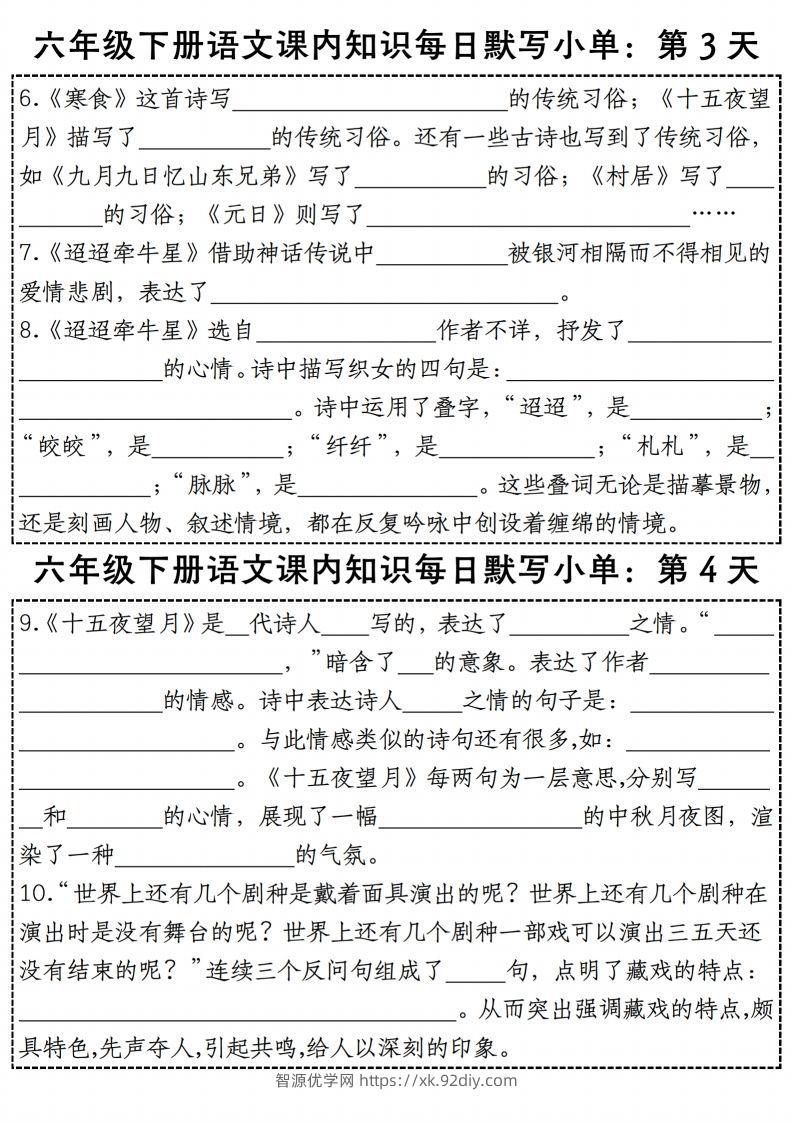 六年级下册语文课内知识每日默写小单：第 3 天
6.《寒食》这首诗写_______________________的传统习俗；《十五夜望
月》描写了___________的传统习俗。还有一些古诗也写到了传统习俗，
如《九月九日忆山东兄弟》写了___________的习俗；《村居》写了____
_______的习俗；《元日》则写了___________________________……
7.《迢迢牵牛星》借助神话传说中___________被银河相隔而不得相见的
爱情悲剧，表达了_____________________________。
8.《迢迢牵牛星》选自_______________作者不详，抒发了____________
____________的心情。诗中描写织女的四句是：______________________
_______________________。诗中运用了叠字，“迢迢”，是___________；
“皎皎”，是___________；“纤纤”，是_____________；“札札”，是__
___________；“脉脉”，是_______________。这些叠词无论是描摹景物，
还是刻画人物、叙述情境，都在反复吟咏中创设着缠绵的情境。
六年级下册语文课内知识每日默写小单：第 4 天
9.《十五夜望月》是__代诗人____写的，表达了__________之情。“_____
______________________，”暗含了___的意象。表达了作者__________
____________的情感。诗中表达诗人_____之情的句子是：____________
__________________。与此情感类似的诗句还有很多,如：____________
__________________。《十五夜望月》每两句为一层意思,分别写______
__和________的心情，展现了一幅_________________的中秋月夜图，渲
染了一种_______________的气氛。
10.“世界上还有几个剧种是戴着面具演出的呢？世界上还有几个剧种在
演出时是没有舞台的呢？世界上还有几个剧种一部戏可以演出三五天还
没有结束的呢？”连续三个反问句组成了_____句，点明了藏戏的特点：
____________________________________。从而突出强调藏戏的特点,颇
具特色,先声夺人,引起共鸣,给人以深刻的印象。
智源优学网 https://xk.92diy.com